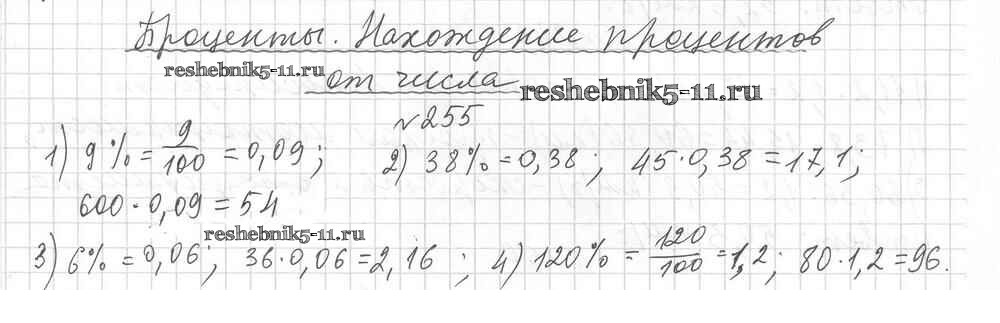 Проценты. Нахождение процентов
reshebnik5-11.ru
от числа
reshebnik5-11.ru
№255
1) 9% = 9/100 = 0,09; 2) 38% = 0,38; 45·0,38 = 17,1;
600·0,09 = 54
reshebnik5-11.ru
3) 6% = 0,06; 36·0,06 = 2,16; 4) 120% = 120/100 = 1,2; 80·1,2 = 96.